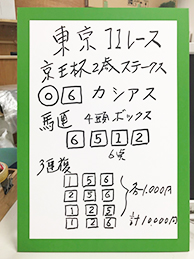 東京11レース
京王杯2歳ステークス
◎ 6 カシアス
馬連 4頭ボックス
6 5 1 2
6点
3連複
1 5 6
2 5 6
1 2 5
1 2 6
各1,000円
計10,000円